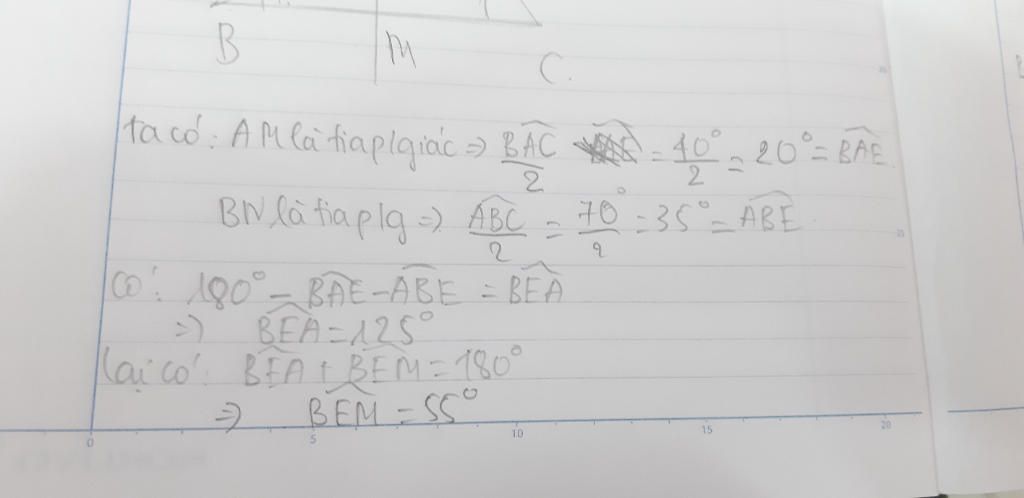 B M C.
ta có: AM là tia p/giác => BAC/2 = 40°/2 = 20° = BAE
BN là tia p/g => ABC/2 = 70°/2 = 35° = ABE
Có: 180° - BAE - ABE = BEA
=> BEA = 125°
lại có: BEA + BEM = 180°
=> BEM = 55°
0 5 10 15 20